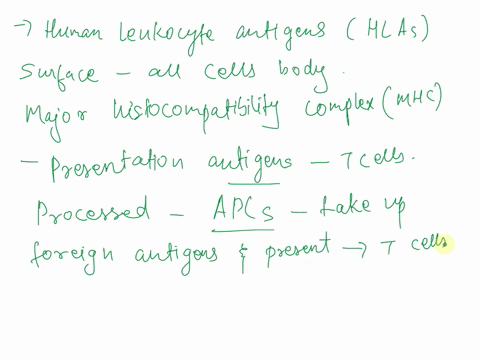 → Human leukocyte antigens (HLAs)
Surface - all cells body.
Major histocompatibility complex (MHC)
- Presentation antigens - T cells.
Processed - APCs - take up
foreign antigens & present → T cells